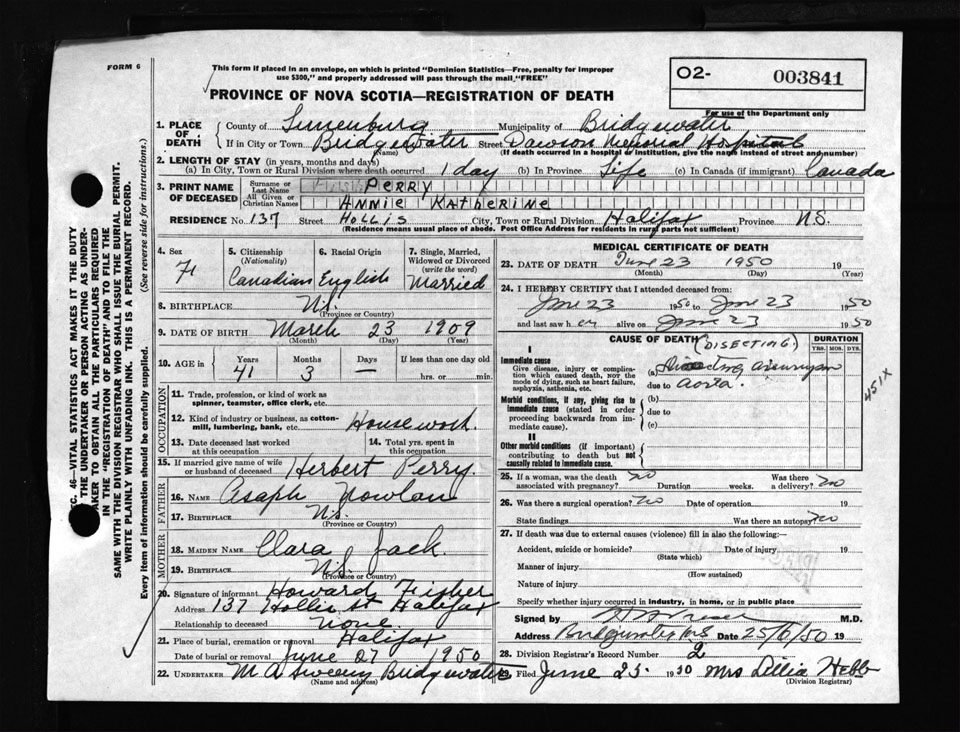 FORM 6
This form if placed in an envelope, on which is printed "Dominion Statistics—Free, penalty for improper
use $300," and properly addressed will pass through the mail "FREE"
PROVINCE OF NOVA SCOTIA—REGISTRATION OF DEATH
O2- 003841
For use of the Department only
1. PLACE OF DEATH
County of Lunenburg Municipality of Bridgewater
If in City or Town Bridgewater Street Dawson Memorial Hospital
(Name) (If death occurred in a hospital or institution, give the name instead of street and number)
2. LENGTH OF STAY (in years, months and days)
(a) In City, Town or Rural Division where death occurred 1 day (b) In Province Life (c) In Canada (if immigrant) Canada
3. PRINT NAME OF DECEASED
Surname or Last Name PERRY
All Given or Christian Names ANNIE KATHERINE
RESIDENCE No. 137 Street HOLLIS City, Town or Rural Division Halifax Province N.S.
(Residence means usual place of abode. Post Office Address for residents in rural parts not sufficient)
4. Sex F
5. Citizenship (Nationality) Canadian
6. Racial Origin English
7. Single, Married, Widowed or Divorced (write the word) Married
8. BIRTHPLACE N.S.
(Province or Country)
9. DATE OF BIRTH March 23 1909
(Month) (Day) (Year)
10. AGE in Years 41 Months 3 Days — If less than one day old
hrs. or min.
OCCUPATION
11. Trade, profession, or kind of work as
spinner, teamster, office clerk, etc.
12. Kind of industry or business, as cotton-
mill, lumbering, bank, etc. Housework.
13. Date deceased last worked
at this occupation
14. Total yrs. spent in
this occupation
15. If married give name of wife
or husband of deceased Herbert Perry.
FATHER
16. NAME Asaph Nowlan
17. BIRTHPLACE N.S.
(Province or Country)
MOTHER
18. MAIDEN NAME Clara Jack.
19. BIRTHPLACE N.S.
(Province or Country)
20. Signature of informant Howard Fisher
Address 137 Hollis St Halifax
Relationship to deceased none.
21. Place of burial, cremation or removal Halifax
Date of burial or removal June 27 1950
22. UNDERTAKER M A Sweeny Bridgewater
(Name and address)
MEDICAL CERTIFICATE OF DEATH
23. DATE OF DEATH June 23 1950 19
(Month) (Day) (Year)
24. I HEREBY CERTIFY that I attended deceased from:
June 23 1950 to June 23 1950
and last saw her alive on June 23 1950
CAUSE OF DEATH (DISECTING)
DURATION
YRS. MOS. DYS.
I
Immediate cause
Give disease, injury or complica-
tion which caused death, not the
mode of dying, such as heart failure,
asphyxia, asthenia, etc.
(a)
due to aorta.
Morbid conditions, if any, giving rise to
immediate cause (stated in order
proceeding backwards from im-
mediate cause).
(b)
due to
(c)
II
Other morbid conditions (if important)
contributing to death but not
causally related to immediate cause.
451X
25. If a woman, was the death
associated with pregnancy? no Duration weeks. Was there
a delivery? no
26. Was there a surgical operation? no Date of operation 19
State findings Was there an autopsy? no
27. If death was due to external causes (violence) fill in also the following:—
Accident, suicide or homicide? Date of injury 19
(State which)
Manner of injury
(How sustained)
Nature of injury
Specify whether injury occurred in industry, in home, or in public place
Signed by M.D.
Address Bridgewater NS Date 25/6/50 19
28. Division Registrar's Record Number 2
29. Filed June 25. 1950 Mrs Lillia Hebb
(Division Registrar)
SEC. 46—VITAL STATISTICS ACT MAKES IT THE DUTY
OF THE UNDERTAKER OR PERSON ACTING AS UNDER-
TAKER TO OBTAIN ALL THE PARTICULARS REQUIRED
IN THE "REGISTRATION OF DEATH" AND TO FILE THE
SAME WITH THE DIVISION REGISTRAR WHO SHALL ISSUE THE BURIAL PERMIT.
WRITE PLAINLY WITH UNFADING INK. THIS IS A PERMANENT RECORD.
Every item of information should be carefully supplied. (See reverse side for instructions.)